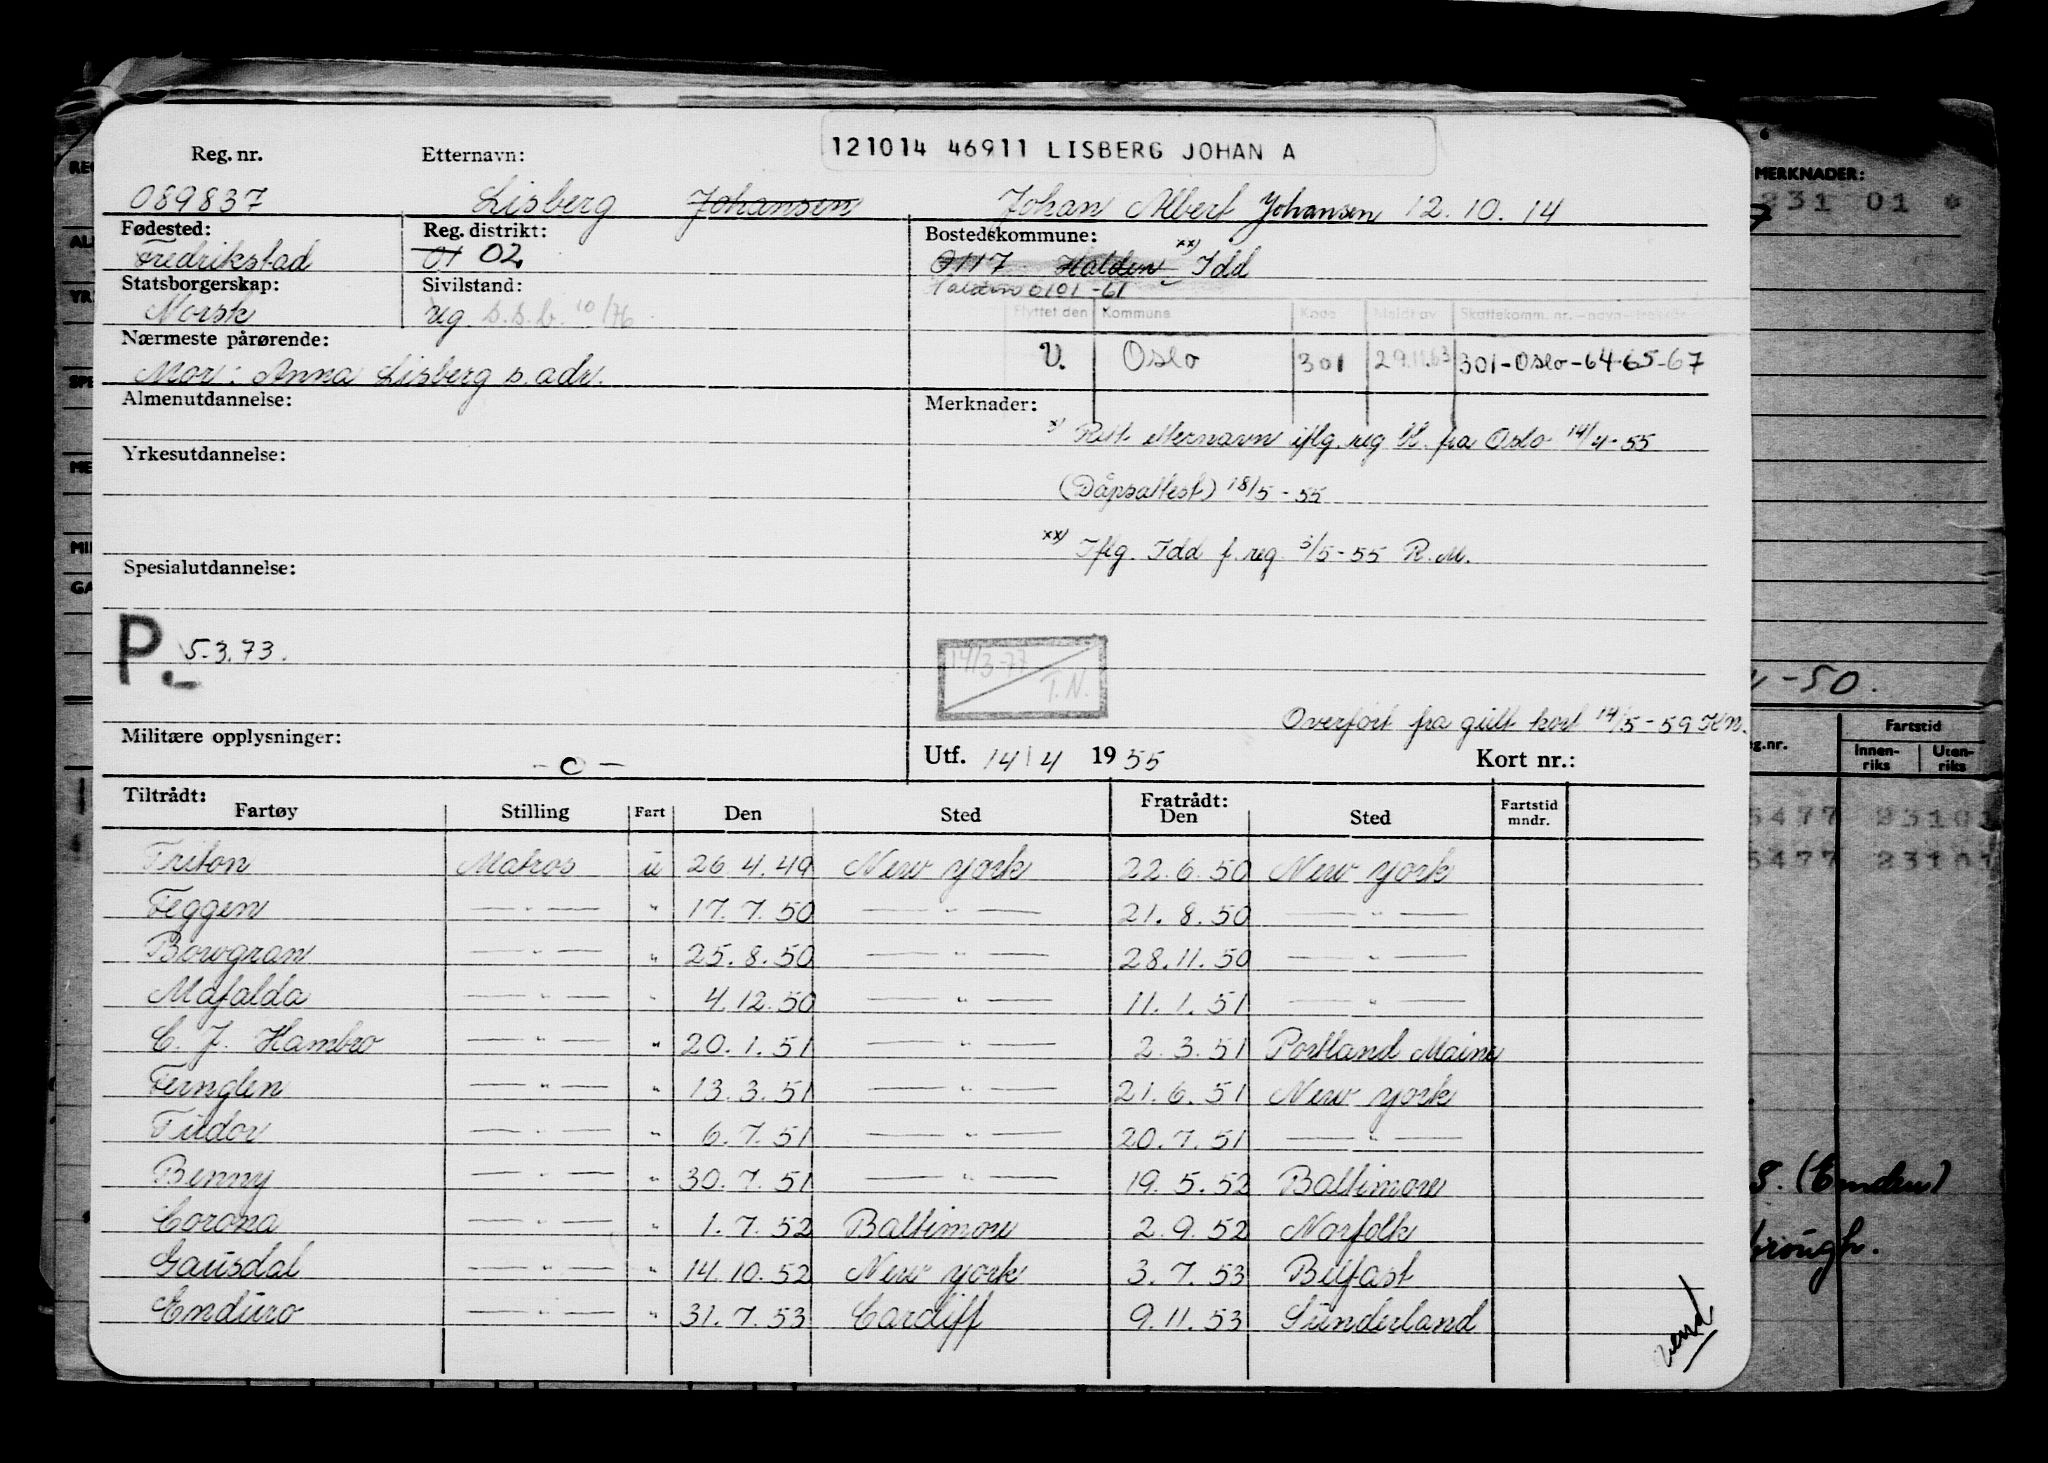 121014 46911 LISBERG JOHAN A
Reg. nr. Etternavn:
089837 Lisberg Johansen Johan Albert Johansen 12.10.14
Fødested: Reg. distrikt: Bostedskommune:
Fredrikstad 01 02 0117 Halden xx) Idd
Halden 0101-61
Statsborgerskap: Sivilstand:
Norsk ug. S.S.b. 10/76
Flyttet den Kommune Kode Meldt av Skattekomm. nr. - navn -
V. Oslo 301 29.11.63 301-Oslo-64-65-67
Nærmeste pårørende:
Mor: Anna Lisberg s. adr.
Almenutdannelse:
Merknader:
x) Rett etternavn iflg. reg. fra Oslo 14/4-55
(Dåpsattest) 18/5-55
xx) Iflg. Idd f. reg. 3/5-55 R.M.
Yrkesutdannelse:
Spesialutdannelse:
P. 5.3.73.
14/3-77
T.N.
Overført fra gult kort 14/5-59 KN.
Militære opplysninger:
- o -
Utf. 14/4 1955 Kort nr.:
Tiltrådt: Fratrådt:
Fartøy Stilling Fart Den Sted Den Sted Fartstid mndr.
Triton Matros u 26.4.49 New York 22.6.50 New York
Feggen — " — " 17.7.50 — " — 21.8.50 — " —
Bowgran — " — " 25.8.50 — " — 28.11.50 — " —
Mafalda — " — " 4.12.50 — " — 11.1.51 — " —
C. J. Hambro — " — " 20.1.51 — " — 2.3.51 Portland Maine
Fernglen — " — " 13.3.51 — " — 21.6.51 New York
Tudor — " — " 6.7.51 — " — 20.7.51 — " —
Benny — " — " 30.7.51 — " — 19.5.52 Baltimore
Corona — " — " 1.7.52 Baltimore 2.9.52 Norfolk
Gausdal — " — " 14.10.52 New York 3.7.53 Belfast
Enduro — " — " 31.7.53 Cardiff 9.11.53 Sunderland
vend
MERKNADER:
231 01
-50.
Fartstid
g.nr. Innenriks Utenriks
5477 23101
5477 23101
S. (Emden)
brough.